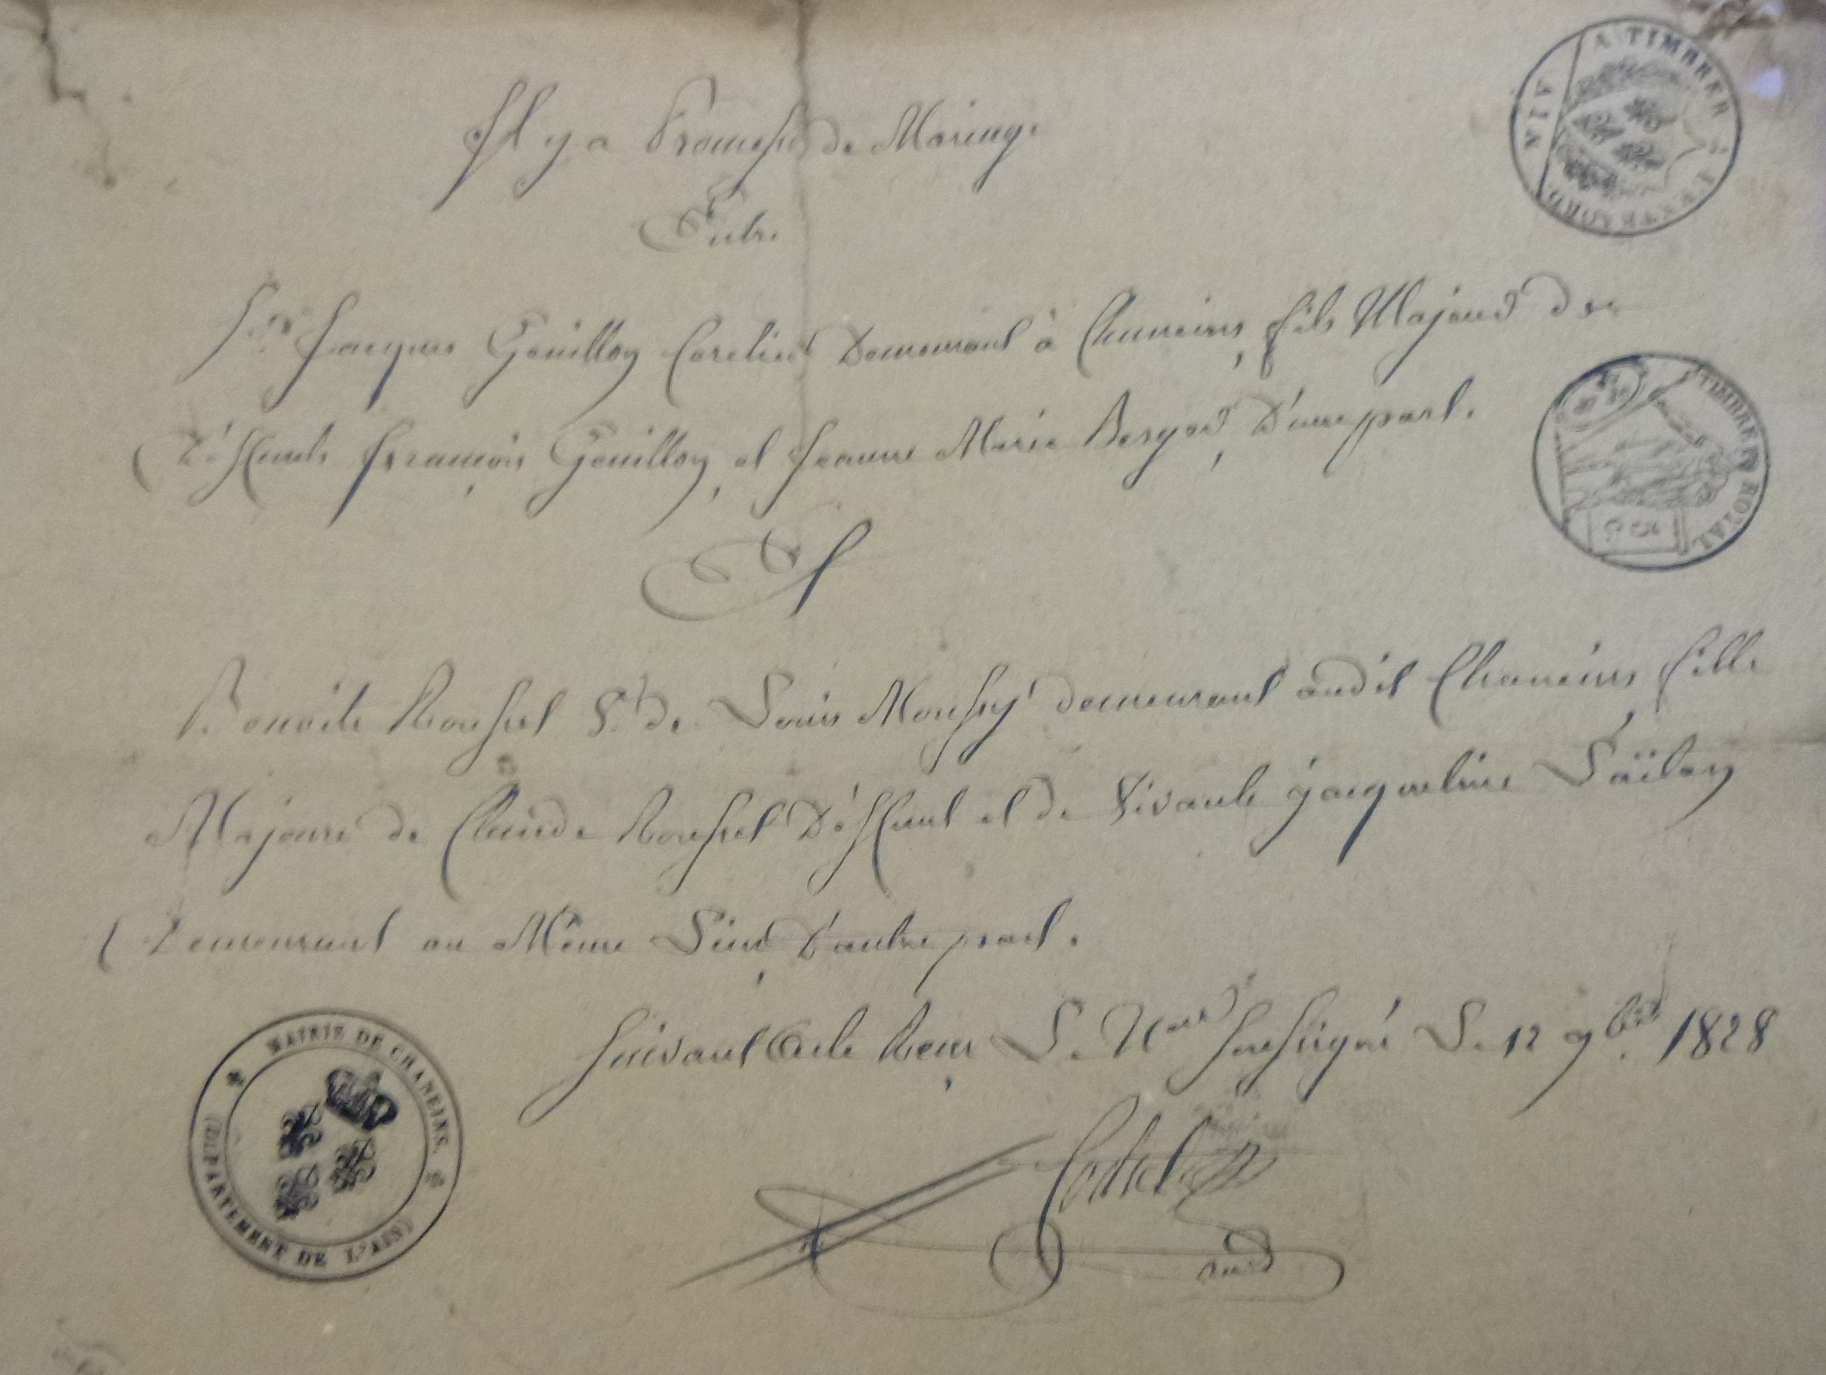 Il y a Promesse de Mariage
Entre
Jacques Gouilloy Cordier Demeurant à Chaneins, fils Majeur de
Défunts François Gouilloy, et Jeanne Marie Berger, D'une part.
Et
Benoite Roussel Vve de Louis Moussy demeurant audit Chaneins, fille
Majeure de Claude Roussel Défunt et de Vivante jacqueline
Demeurant au Même Lieu, D'autre part.
Suivant Acte Reçu, Le Nore Soussigné Le 12 9bre 1828
A TIMBRER
EXTRAORD.
AIN
TIMBRE ROYAL
MAIRIE DE CHANEINS
(DÉPARTEMENT DE L'AIN)